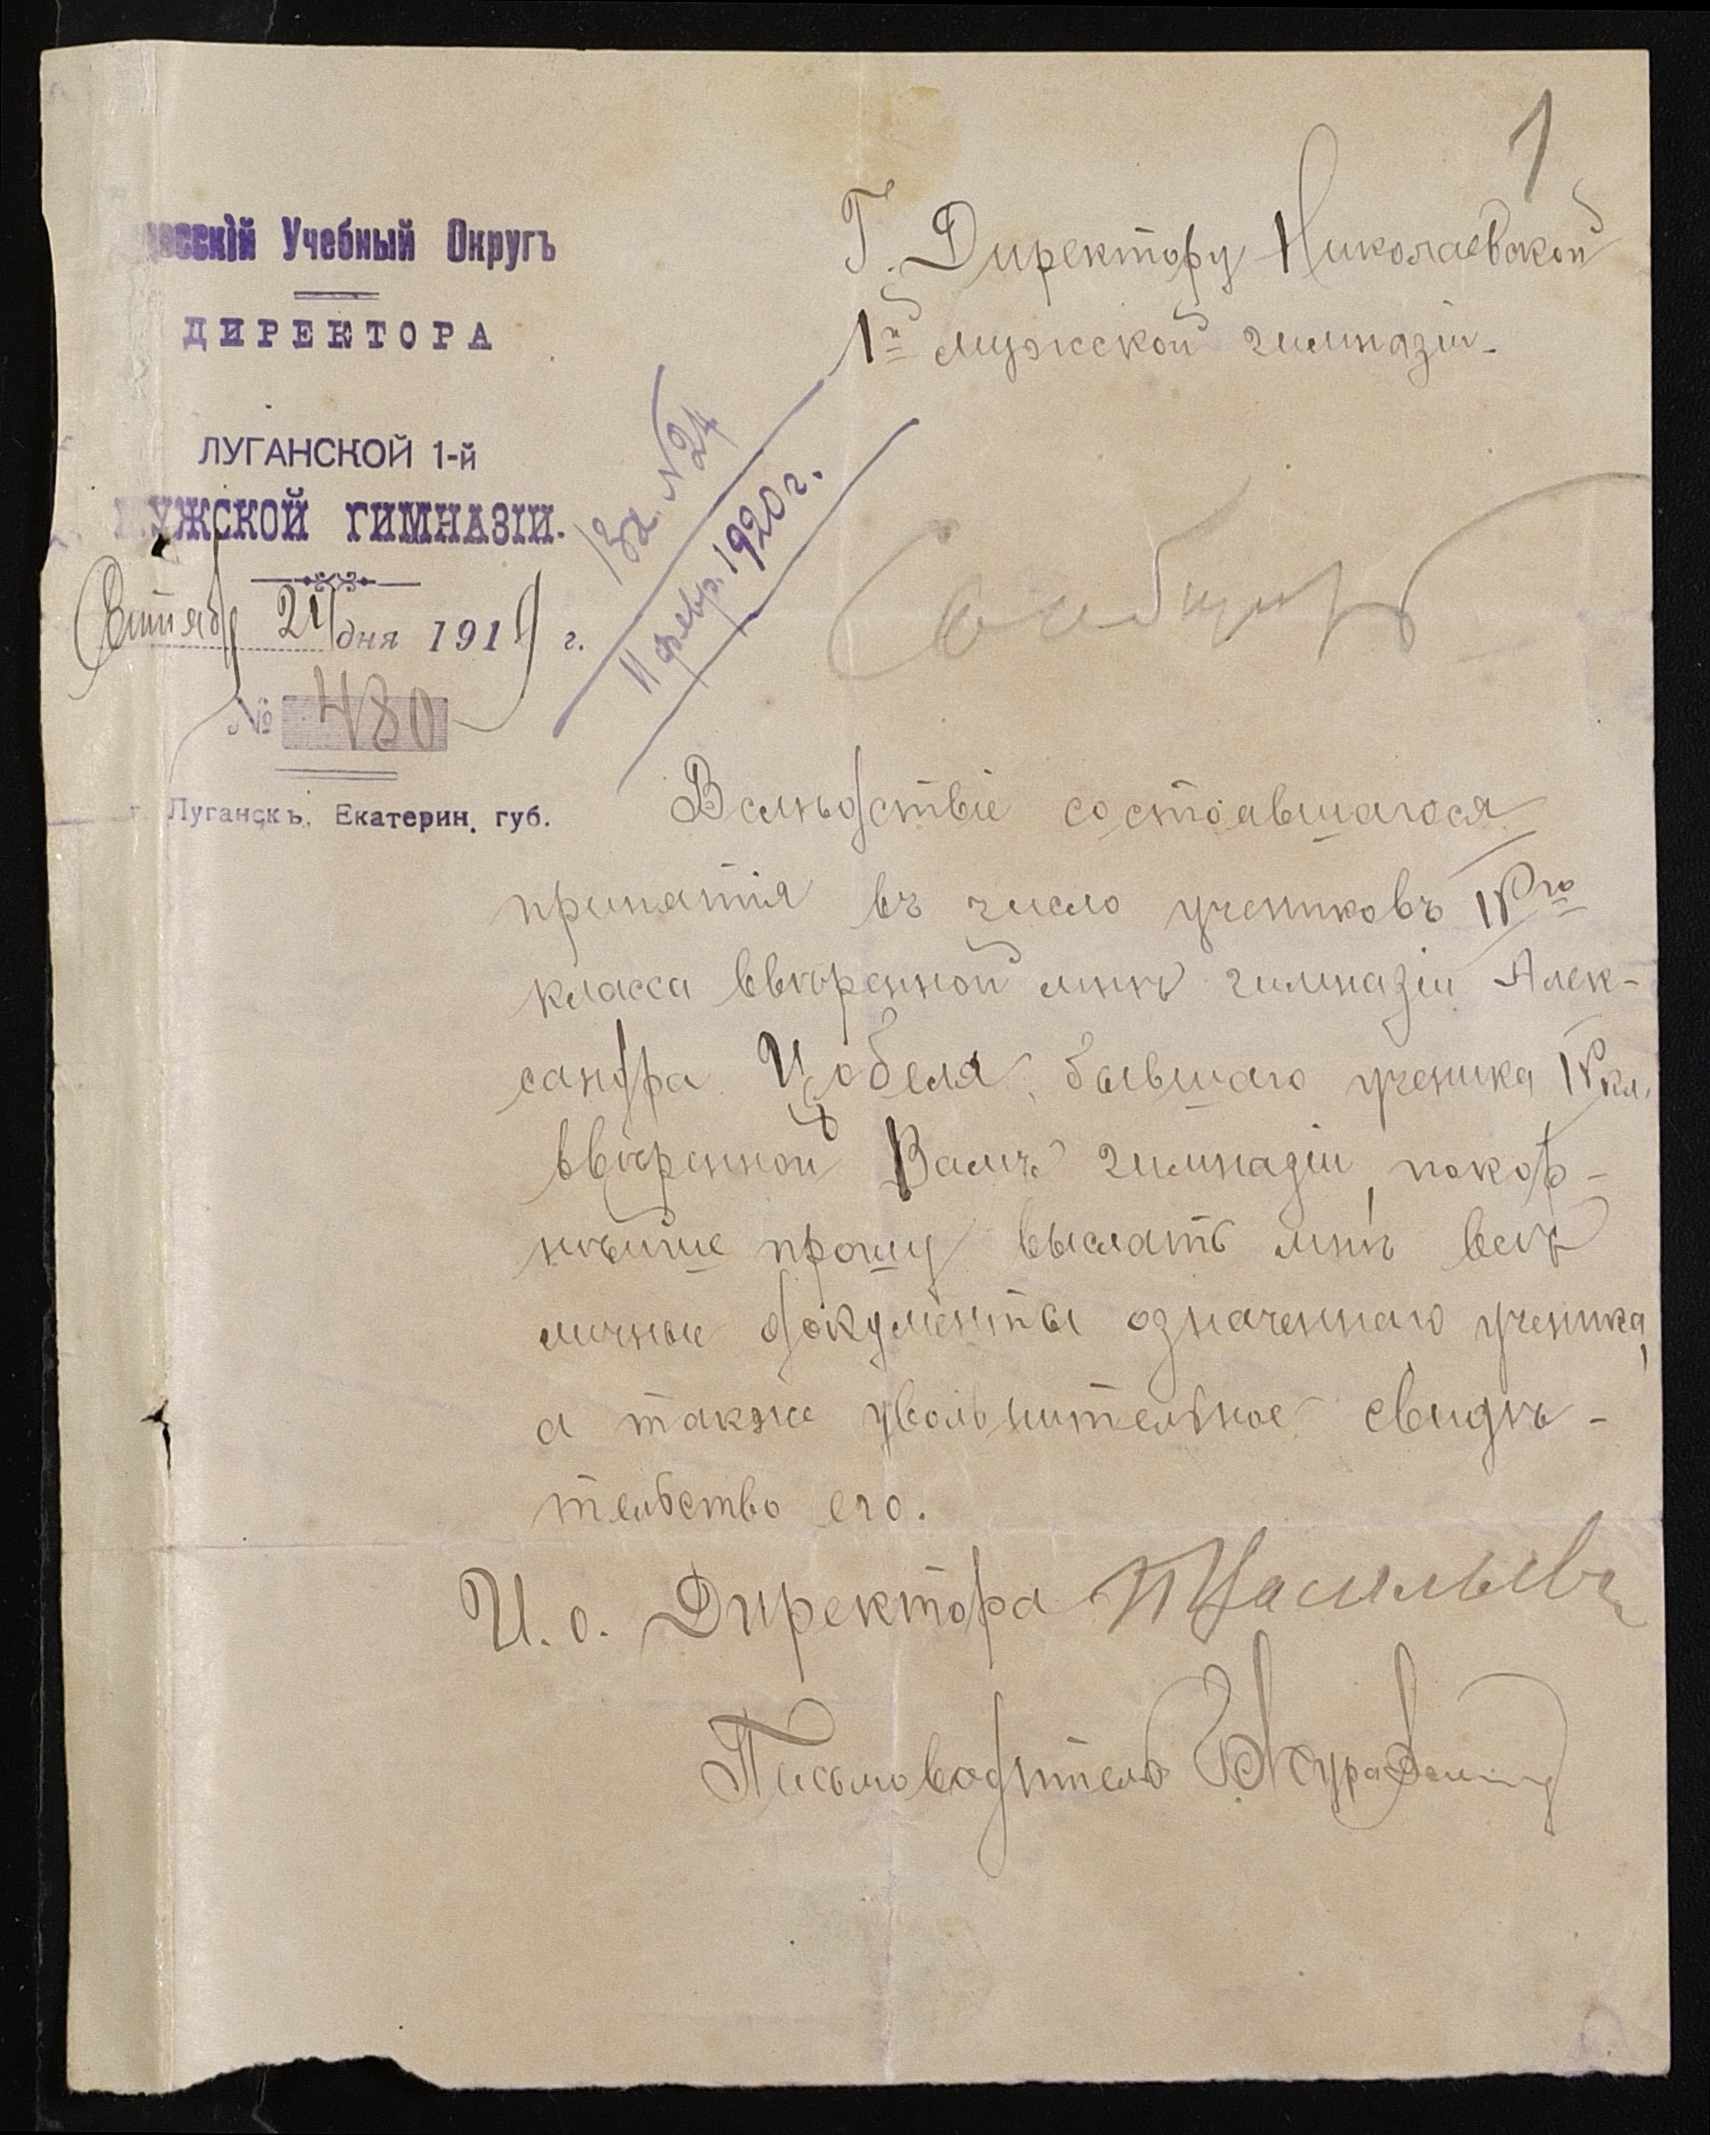 1
Г. Директору Николаевской
1й мужской гимназіи.
Учебный Округъ
ДИРЕКТОРА
ЛУГАНСКОЙ 1-й
МУЖСКОЙ ГИМНАЗІИ.
дня 1919 г.
№ 480
г. Луганскъ, Екатерин. губ.
Вх. N 24
11 февр. 1920 г.
Вслѣдствіе состоявшагося
принятія въ число учениковъ IVго
класса ввѣренной мнѣ гимназіи Алек-
сандра Цобеля, бывшаго ученика IV кл.
ввѣренной Вамъ гимназіи, покор-
нѣйше прошу выслать мнѣ всѣ
личные документы означеннаго ученика,
а также увольнительное свидѣ-
тельство его.
И. о. Директора Васильевъ
Письмоводитель